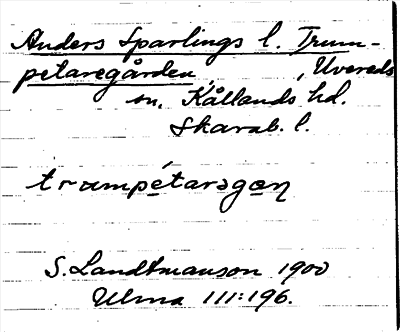 Anders Sparlings l. Trum-
petaregården, Uvereds
sn. Kållands hd.
Skarab. l.
trumpétaragæn
S. Landtmanson 1900
Ulma 111:196.